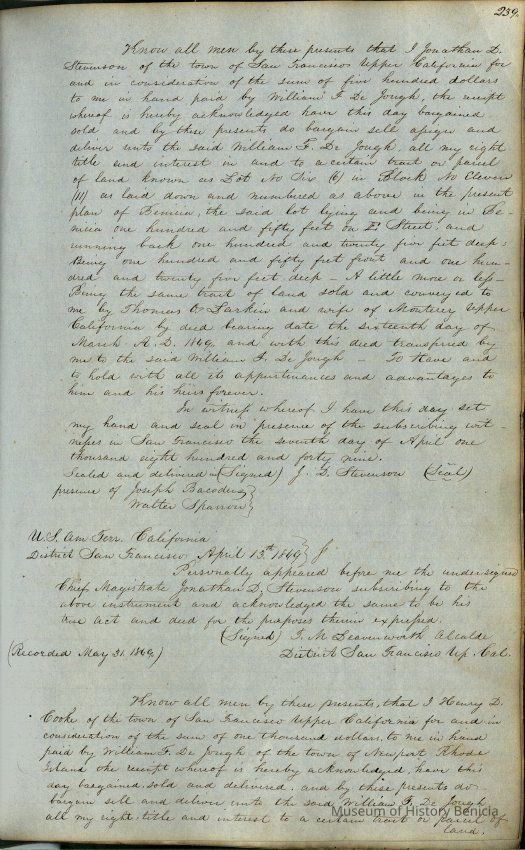 239.
Know all men by these presents that I Jonathan D.
Stevenson of the town of San Francisco Upper California for
and in consideration of the sum of five hundred dollars
to me in hand paid by William F. De Jough, the receipt
whereof is hereby acknowledged have this day bargained
sold and by these presents do bargain sell assign and
deliver unto the said William F. De Jough all my right
title and interest in and to a certain tract or parcel
of land known as Lot No Six (6) in Block No Eleven
(11) as laid down and numbered as above in the present
plan of Benicia, the said lot lying and being in Be-
nicia one hundred and fifty feet on Street, and
running back one hundred and twenty five feet deep:
Being one hundred and fifty feet front and one hun-
dred and twenty five feet deep - A little more or less -
Being the same tract of land sold and conveyed to
me by Thomas O. Larkin and wife of Monterey Upper
California by deed bearing date the sixteenth day of
March A.D. 1849 and with this deed transferred by
me to the said William F. De Jough - To Have and
to hold with all its appurtenances and advantages to
him and his heirs forever.
In witness whereof I have this day set
my hand and seal in presence of the subscribing wit-
nesses in San Francisco the seventh day of April one
thousand eight hundred and forty nine.
Sealed and delivered in (Signed) J. D. Stevenson (Seal)
presence of Joseph
Walter Sparrow
U.S. Am Terr. California
District San Francisco April 13th 1849
Personally appeared before me the undersigned
Chief Magistrate Jonathan D. Stevenson subscribing to the
above instrument and acknowledged the same to be his
true act and deed for the purposes therein expressed.
(Signed) T. M. Leavenworth Alcalde
(Recorded May 31. 1849.) District San Francisco Up. Cal.
Know all men by these presents, that I Henry D.
Cooke of the town of San Francisco Upper California for and in
consideration of the sum of one thousand dollars, to me in hand
paid by William F. De Jough of the town of Newport Rhode
Island the receipt whereof is hereby acknowledged, have this
day bargained, sold and delivered, and by these presents do
bargain sell and deliver unto the said William F. De Jough
all my right, title and interest to a certain tract or parcel of
land.
Museum of History Benicia